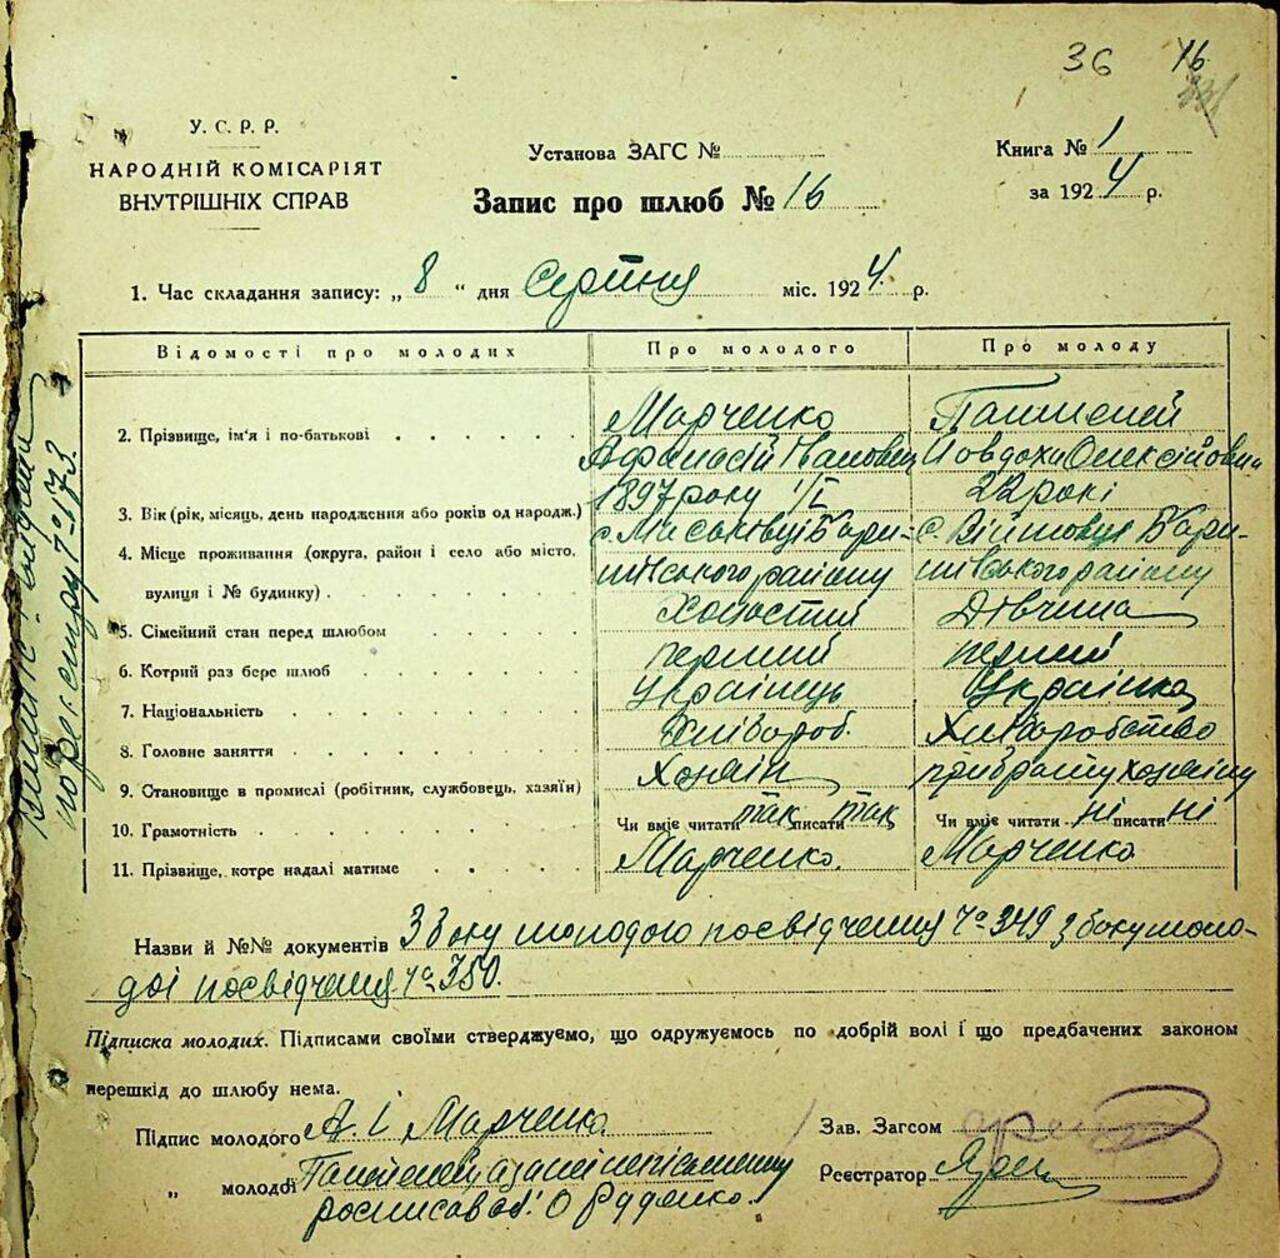 36 16
У. С. Р. Р.
НАРОДНІЙ КОМІСАРІЯТ
ВНУТРІШНІХ СПРАВ
Установа ЗАГС №
Запис про шлюб № 16
Книга № 1
за 1924 р.
1. Час складання запису: „ 8 “ дня Серпня міс. 1924. р.
Відомості про молодих Про молодого Про молоду
2. Прізвище, ім'я і по-батькові Марченко
Афанасій Іванович
Йовдоха Олексійовна
3. Вік (рік, місяць, день народження або років од народж.) 1897 року 1/I 22 рокі
4. Місце проживання (округа, район і село або місто, вулиця і № будинку) с. Маськівці Бари-
шівського району
с. Війтовці Бари-
шівського району
5. Сімейний стан перед шлюбом Холостий Дівчина
6. Котрий раз бере шлюб перший перший
7. Національність Українець Українка
8. Головне заняття Хлібороб. Хліборобство
9. Становище в промислі (робітник, службовець, хазяїн) Хозяін при брату хозяіну
10. Грамотність Чи вміє читати так писати так Чи вміє читати ні писати ні
11. Прізвище, котре надалі матиме Марченко. Марченко
Назви й №№ документів З боку молодого посвідчення № 349 з боку моло-
дої посвідчення № 350.
Підписка молодих. Підписами своїми стверджуємо, що одружуємось по добрій волі і що предбачених законом
перешкід до шлюбу нема.
Підпис молодого А. І. Марченко
Зав. Загсом
„ молодої неписьменну
росписавсь: О Руденко.
Реєстратор